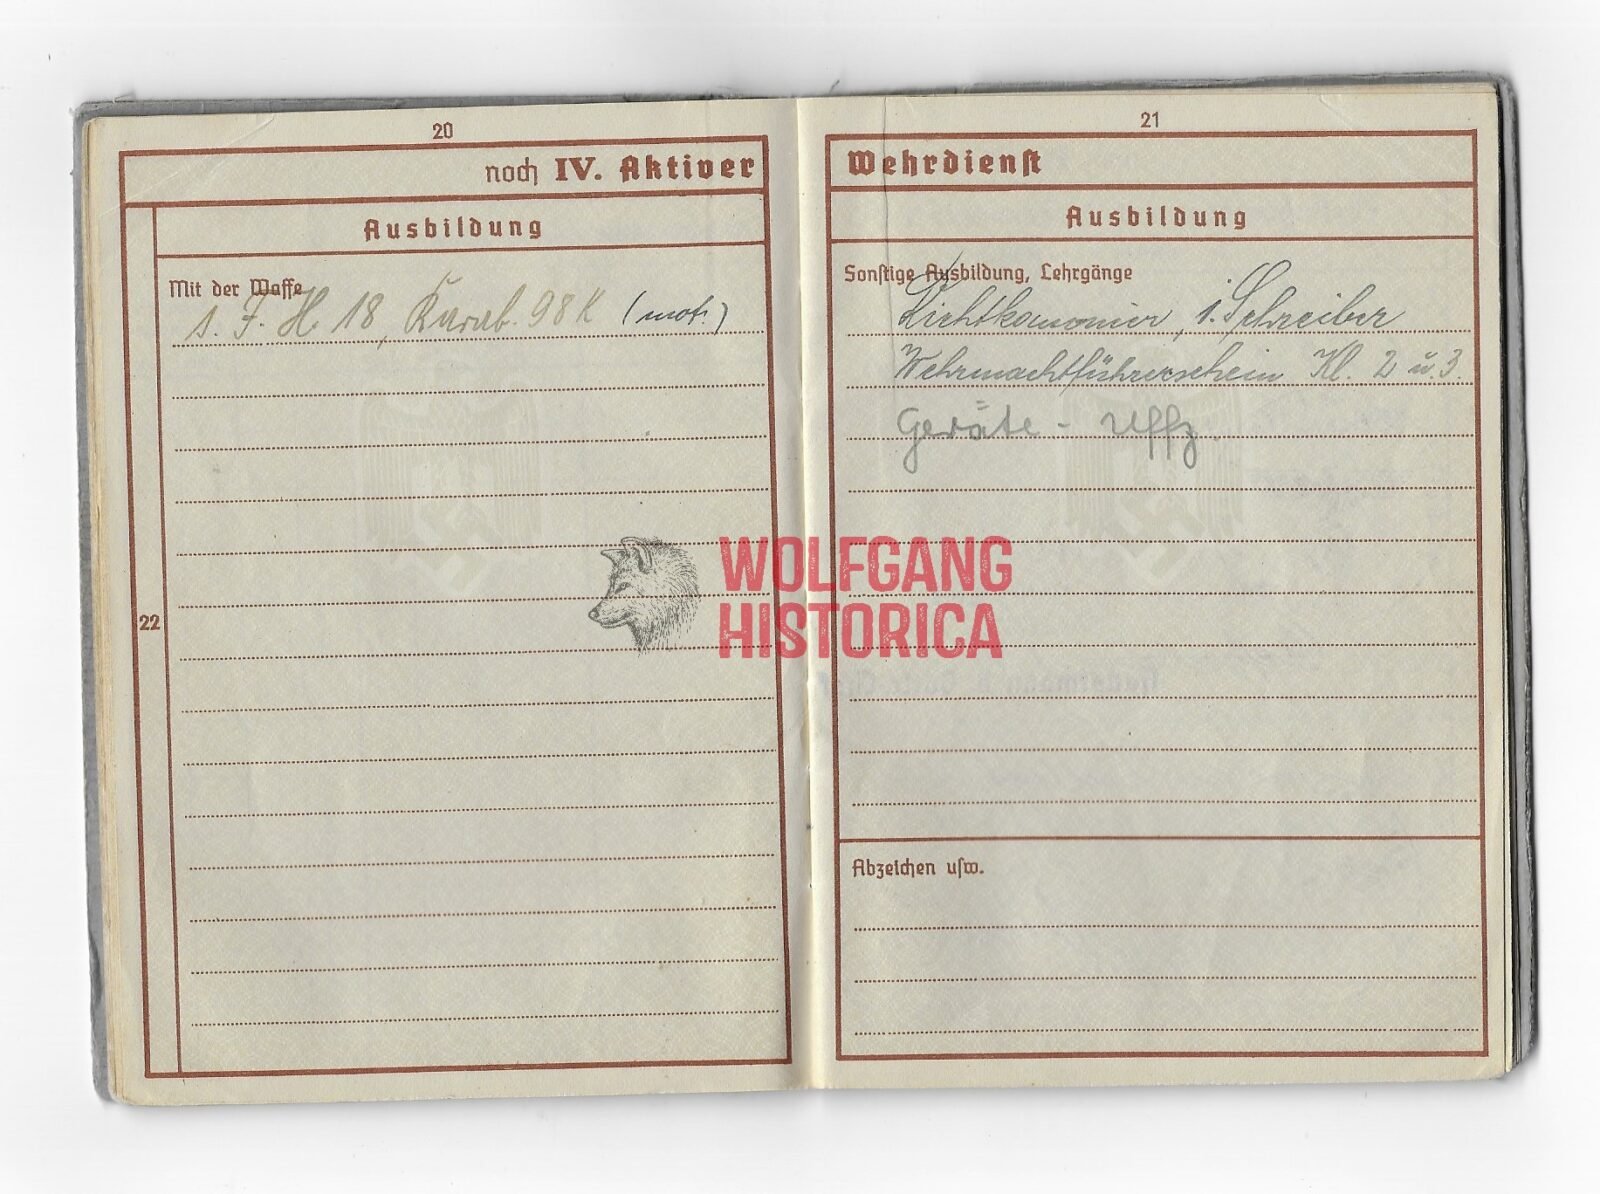 20
noch IV. Aktiver
Ausbildung
Mit der Waffe
s. F. H. 18, Karab. 98K (mot.)
22
21
Wehrdienst
Ausbildung
Sonstige Ausbildung, Lehrgänge
Richtkanonier, i. Schreiber
Wehrmachtführerschein Kl. 2 u. 3.
Geräte - Uffz.
Abzeichen usw.
WOLFGANG
HISTORICA